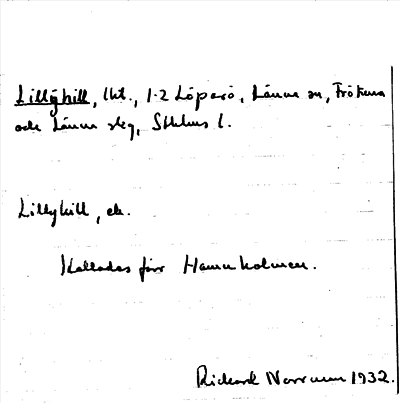 Lillyhill, lht., 1-2 Löparö, Länna sn, Frötuna
och Länna skg, Sthlms l.
Lillyhill, ck.
Kallades förr Hamnholmen.
Richard Norrman 1932.